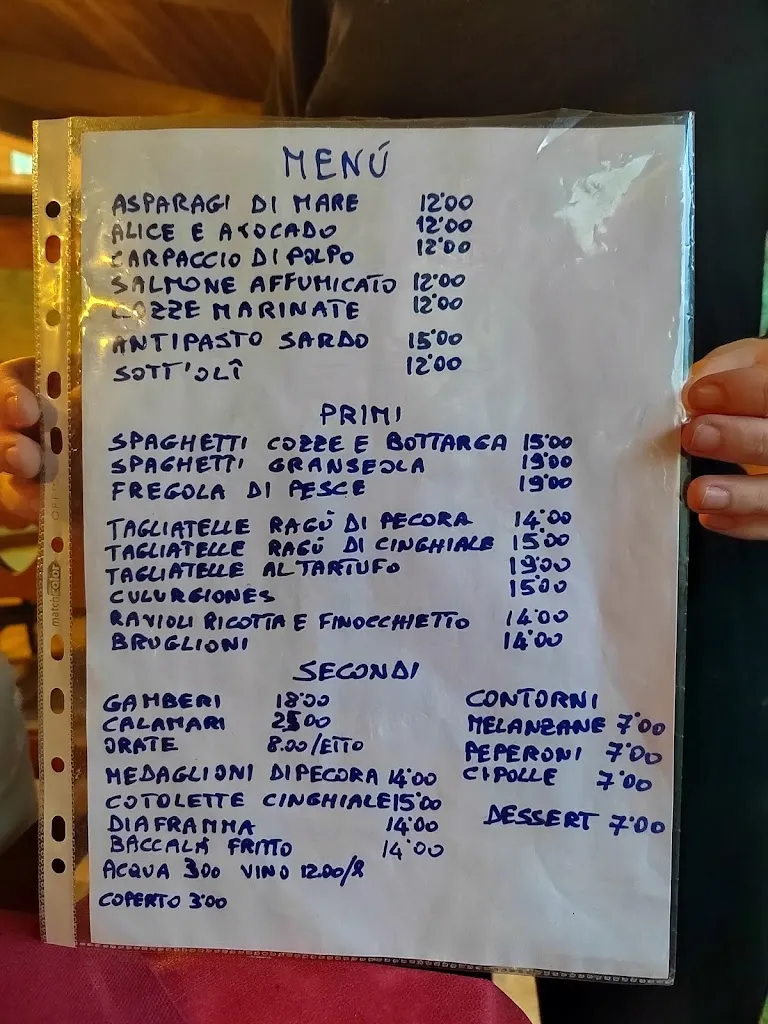 MENÚ
ASPARAGI DI MARE 12'00
ALICE E AVOCADO 12'00
CARPACCIO DI POLPO 12'00
SALMONE AFFUMICATO 12'00
COZZE MARINATE 12'00
ANTIPASTO SARDO 15'00
SOTT'OLÎ 12'00
PRIMI
SPAGHETTI COZZE E BOTTARGA 15'00
SPAGHETTI GRANSEOLA 19'00
FREGOLA DI PESCE 19'00
TAGLIATELLE RAGÚ DI PECORA 14'00
TAGLIATELLE RAGÚ DI CINGHIALE 15'00
TAGLIATELLE AL TARTUFO 19'00
CULURGIONES 15'00
RAVIOLI RICOTTA E FINOCCHIETTO 14'00
BRUGLIONI 14'00
SECONDI
GAMBERI 18'00
CALAMARI 25'00
ORATE 8.00/ETTO
MEDAGLIONI DI PECORA 14'00
COTOLETTE CINGHIALE 15'00
DIAFRAMMA 14'00
BACCALÁ FRITTO 14'00
ACQUA 3'00 VINO 12.00/L
COPERTO 3'00
CONTORNI
MELANZANE 7'00
PEPERONI 7'00
CIPOLLE 7'00
DESSERT 7'00
matchcolor